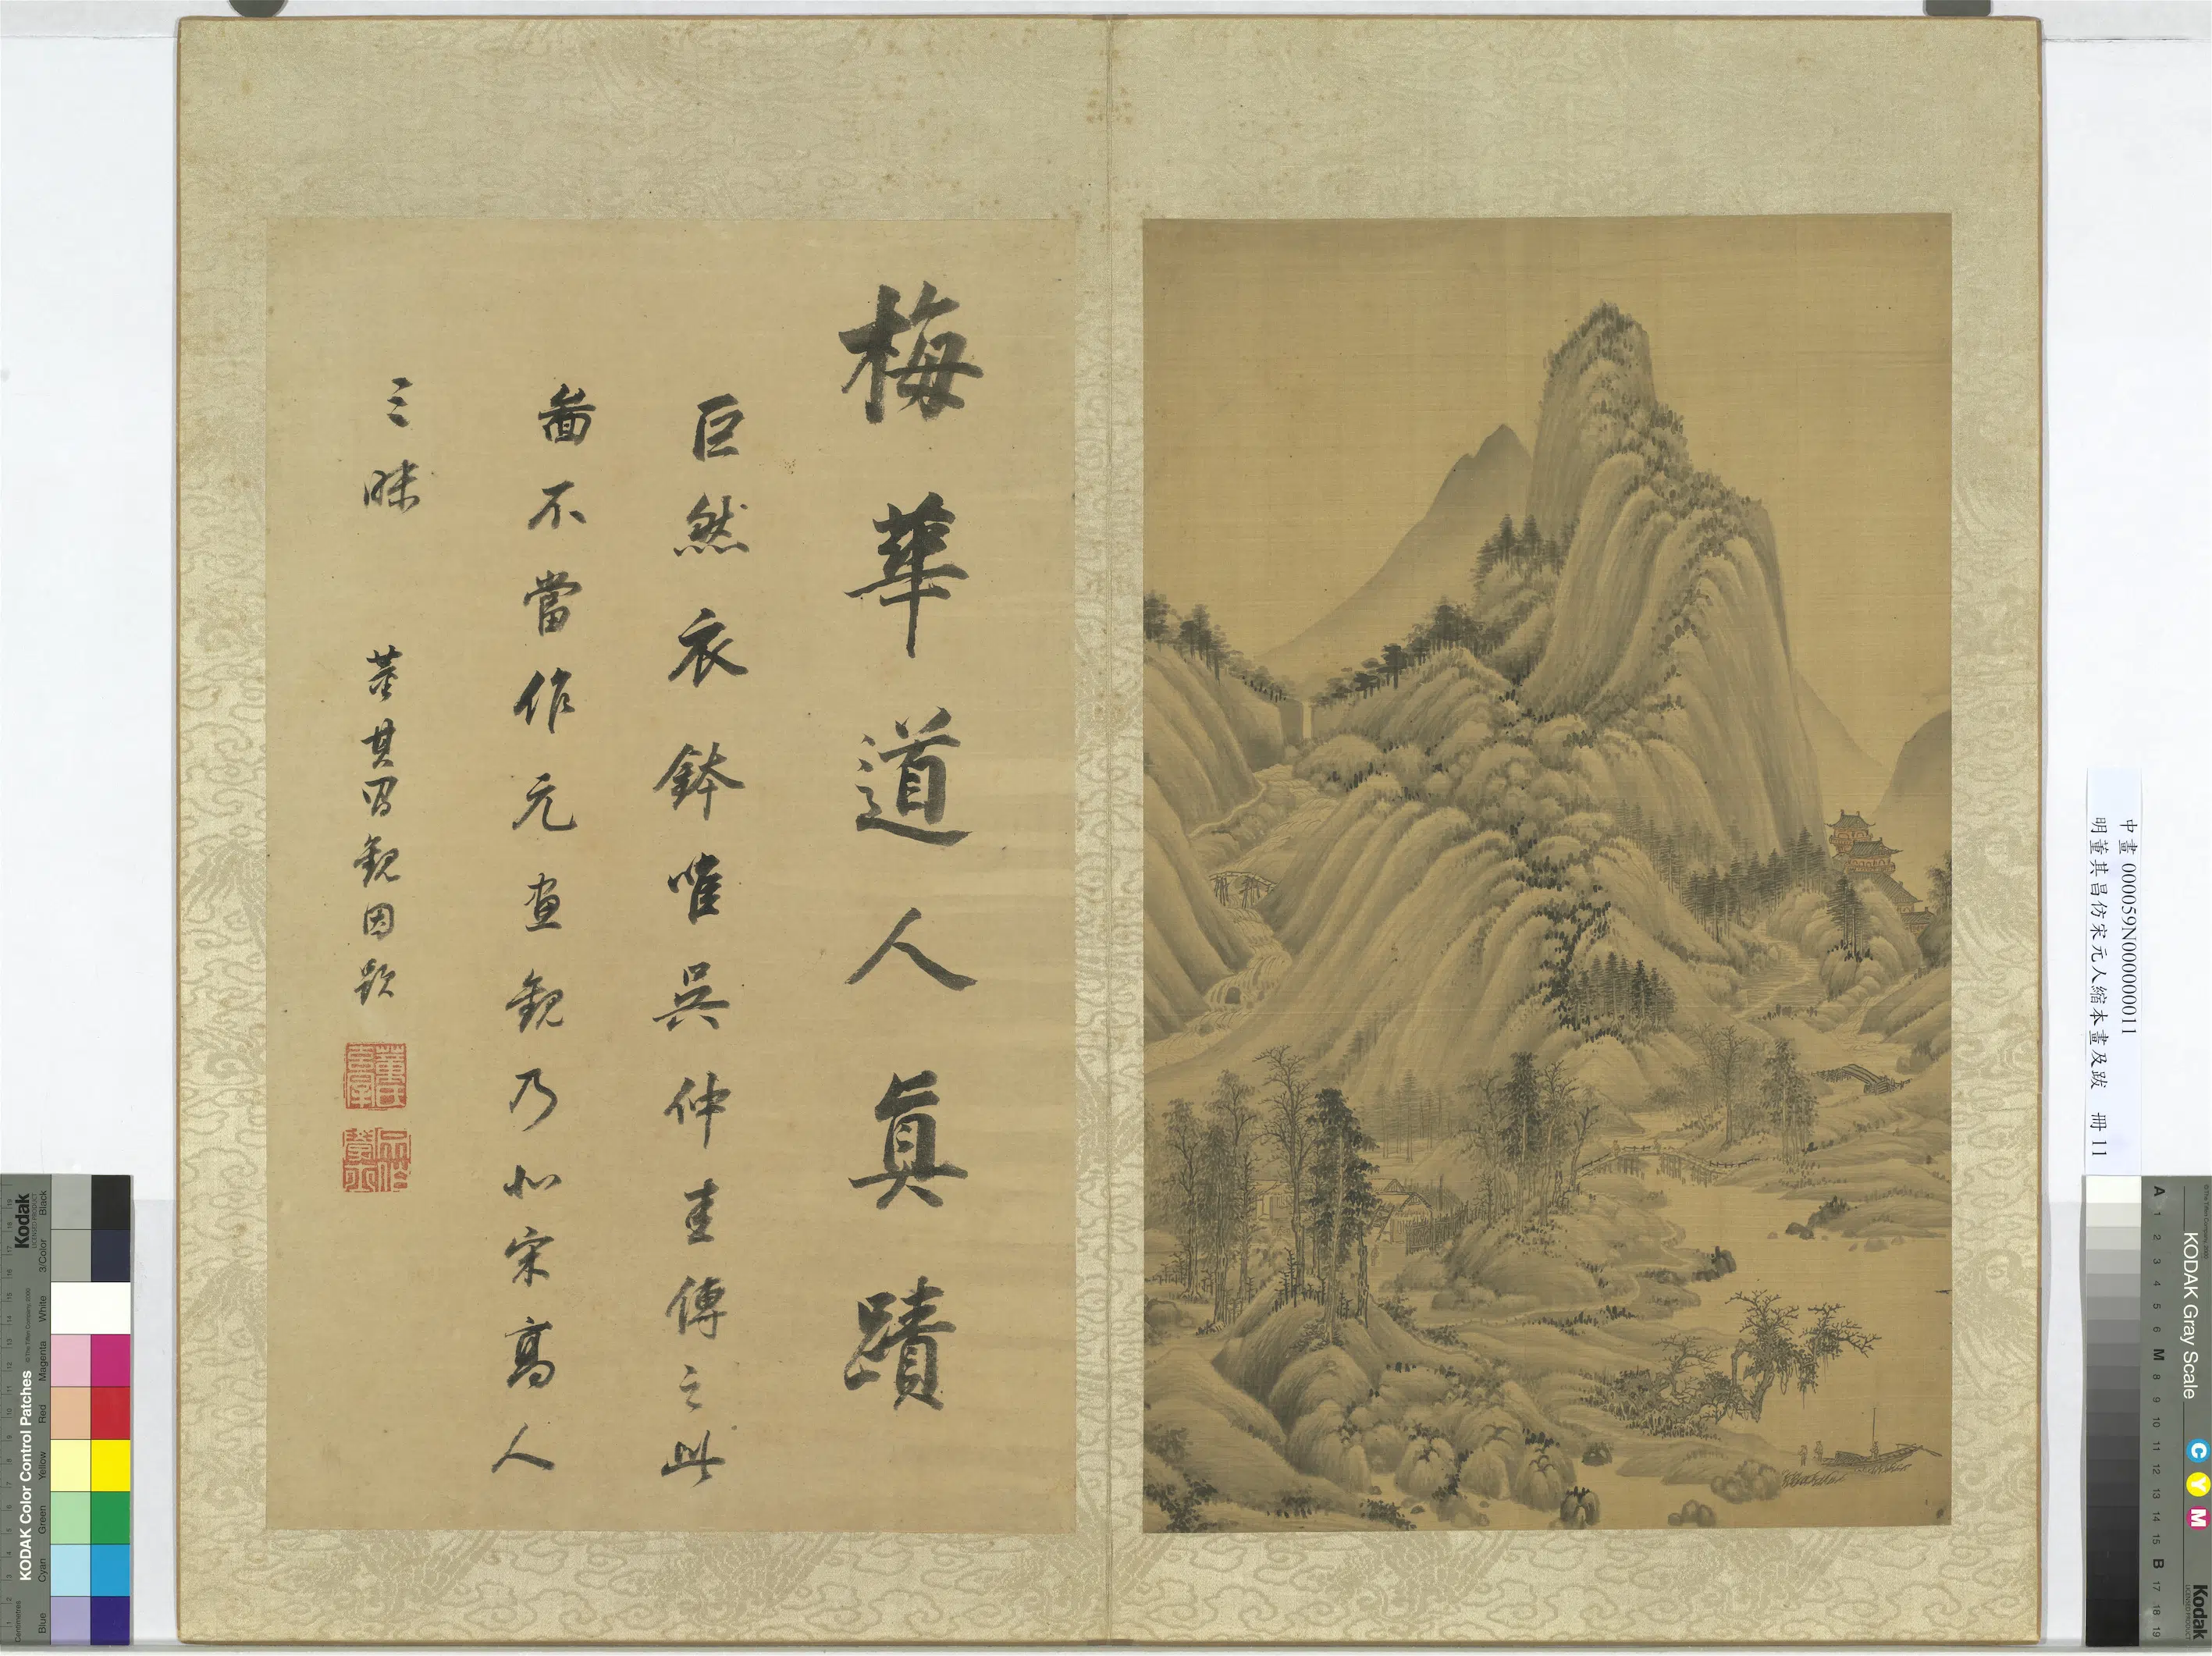 梅華道人真蹟
巨然衣鉢唯吳仲圭傳之此
啚不當作元畫觀乃北宋高人
三昧
董其昌觀因題
中畫 000059N000000011
明董其昌仿宋元人縮本畫及跋 冊 11
Kodak
LICENSED PRODUCT
KODAK Color Control Patches
© The Tiffen Company, 2000
Centimetres
Blue Cyan Green Yellow Red Magenta White 3/Color Black
KODAK Gray Scale
C Y M
Kodak
LICENSED PRODUCT
A 1 2 3 4 5 6 M 8 9 10 11 12 13 14 15 B 17 18 19